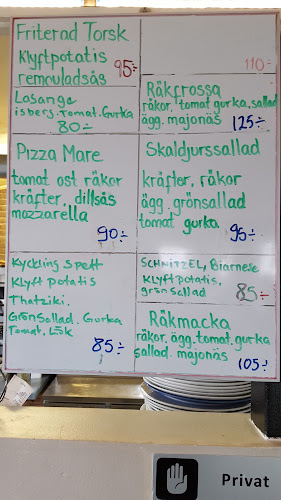 Friterad Torsk
Klyftpotatis
remouladsås 95:-
Lasange
isberg. tomat. Gurka
80:-
Pizza Mare
tomat ost räkor
kräftor, dillsås
mozzarella
90:-
Kyckling Spett
Klyft potatis
Thatziki.
GrönSallad. Gurka
Tomat. Lök
85:-
110:-
Räkfrossa
räkor, tomat gurka, sallad
ägg. majonäs 125:-
Skaldjurssallad
kräftor, räkor
ägg. grönsallad
tomat gurka 95:-
SCHNITZEL, Biarnese
Klyftpotatis,
grön sallad 85:-
Räkmacka
räkor, ägg, tomat, gurka
sallad. majonäs
105:-
Privat